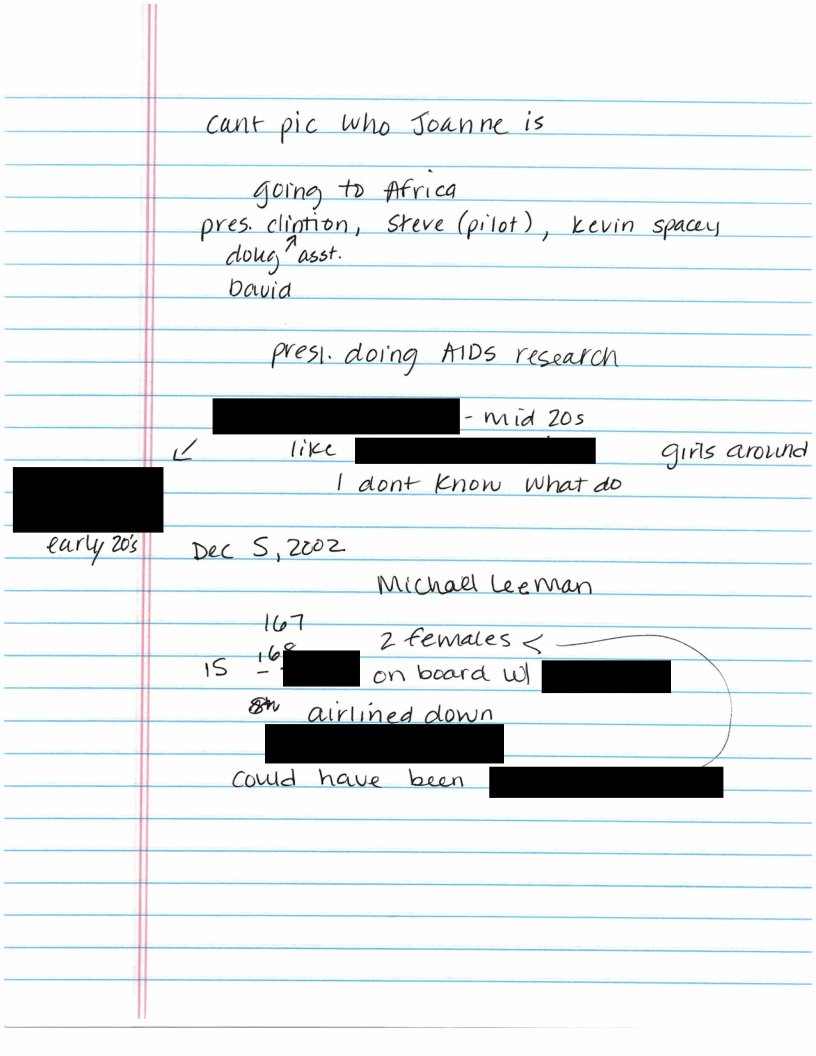 cant pic who Joanne is
going to Africa
pres. clintion, Steve (pilot), kevin spacey
doug asst.
David
presi. doing AIDs research
- mid 20s
like girls around
I dont know what do
early 20's
Dec 5, 2002
Michael Leeman
167
168
2 females <
15
on board w/
airlined down
could have been